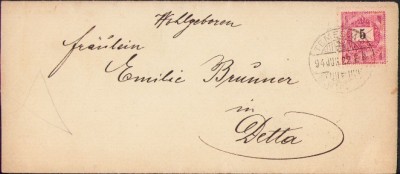 Wohlgeboren
fräulein
Emilie Brunner
in
Detta
5